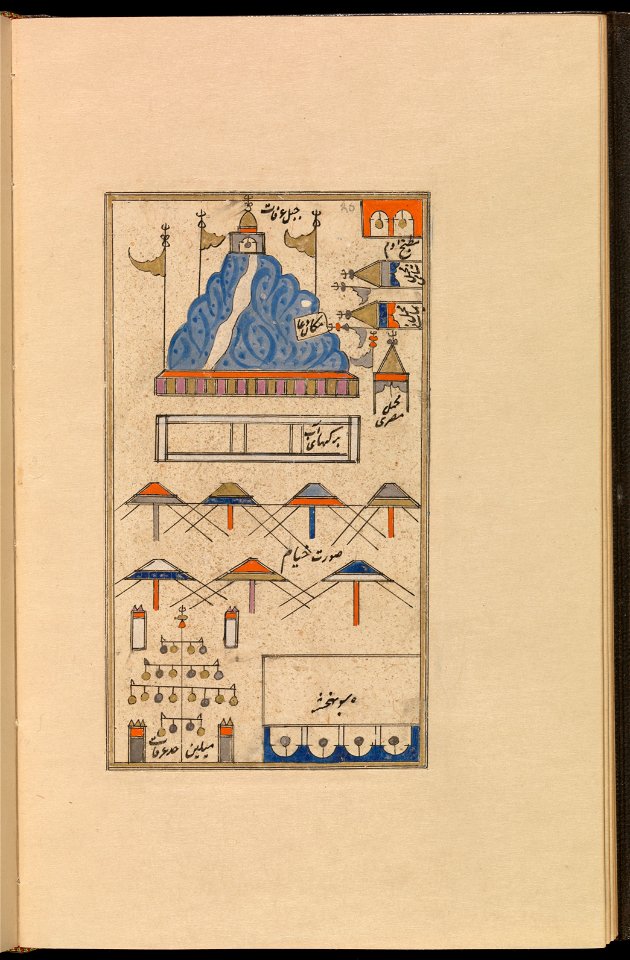 جبل عرفات
مطبخ آدم
مکان دعا
محمل
مصری
برکهای آب
صورت خیام
میلین حد عرفات